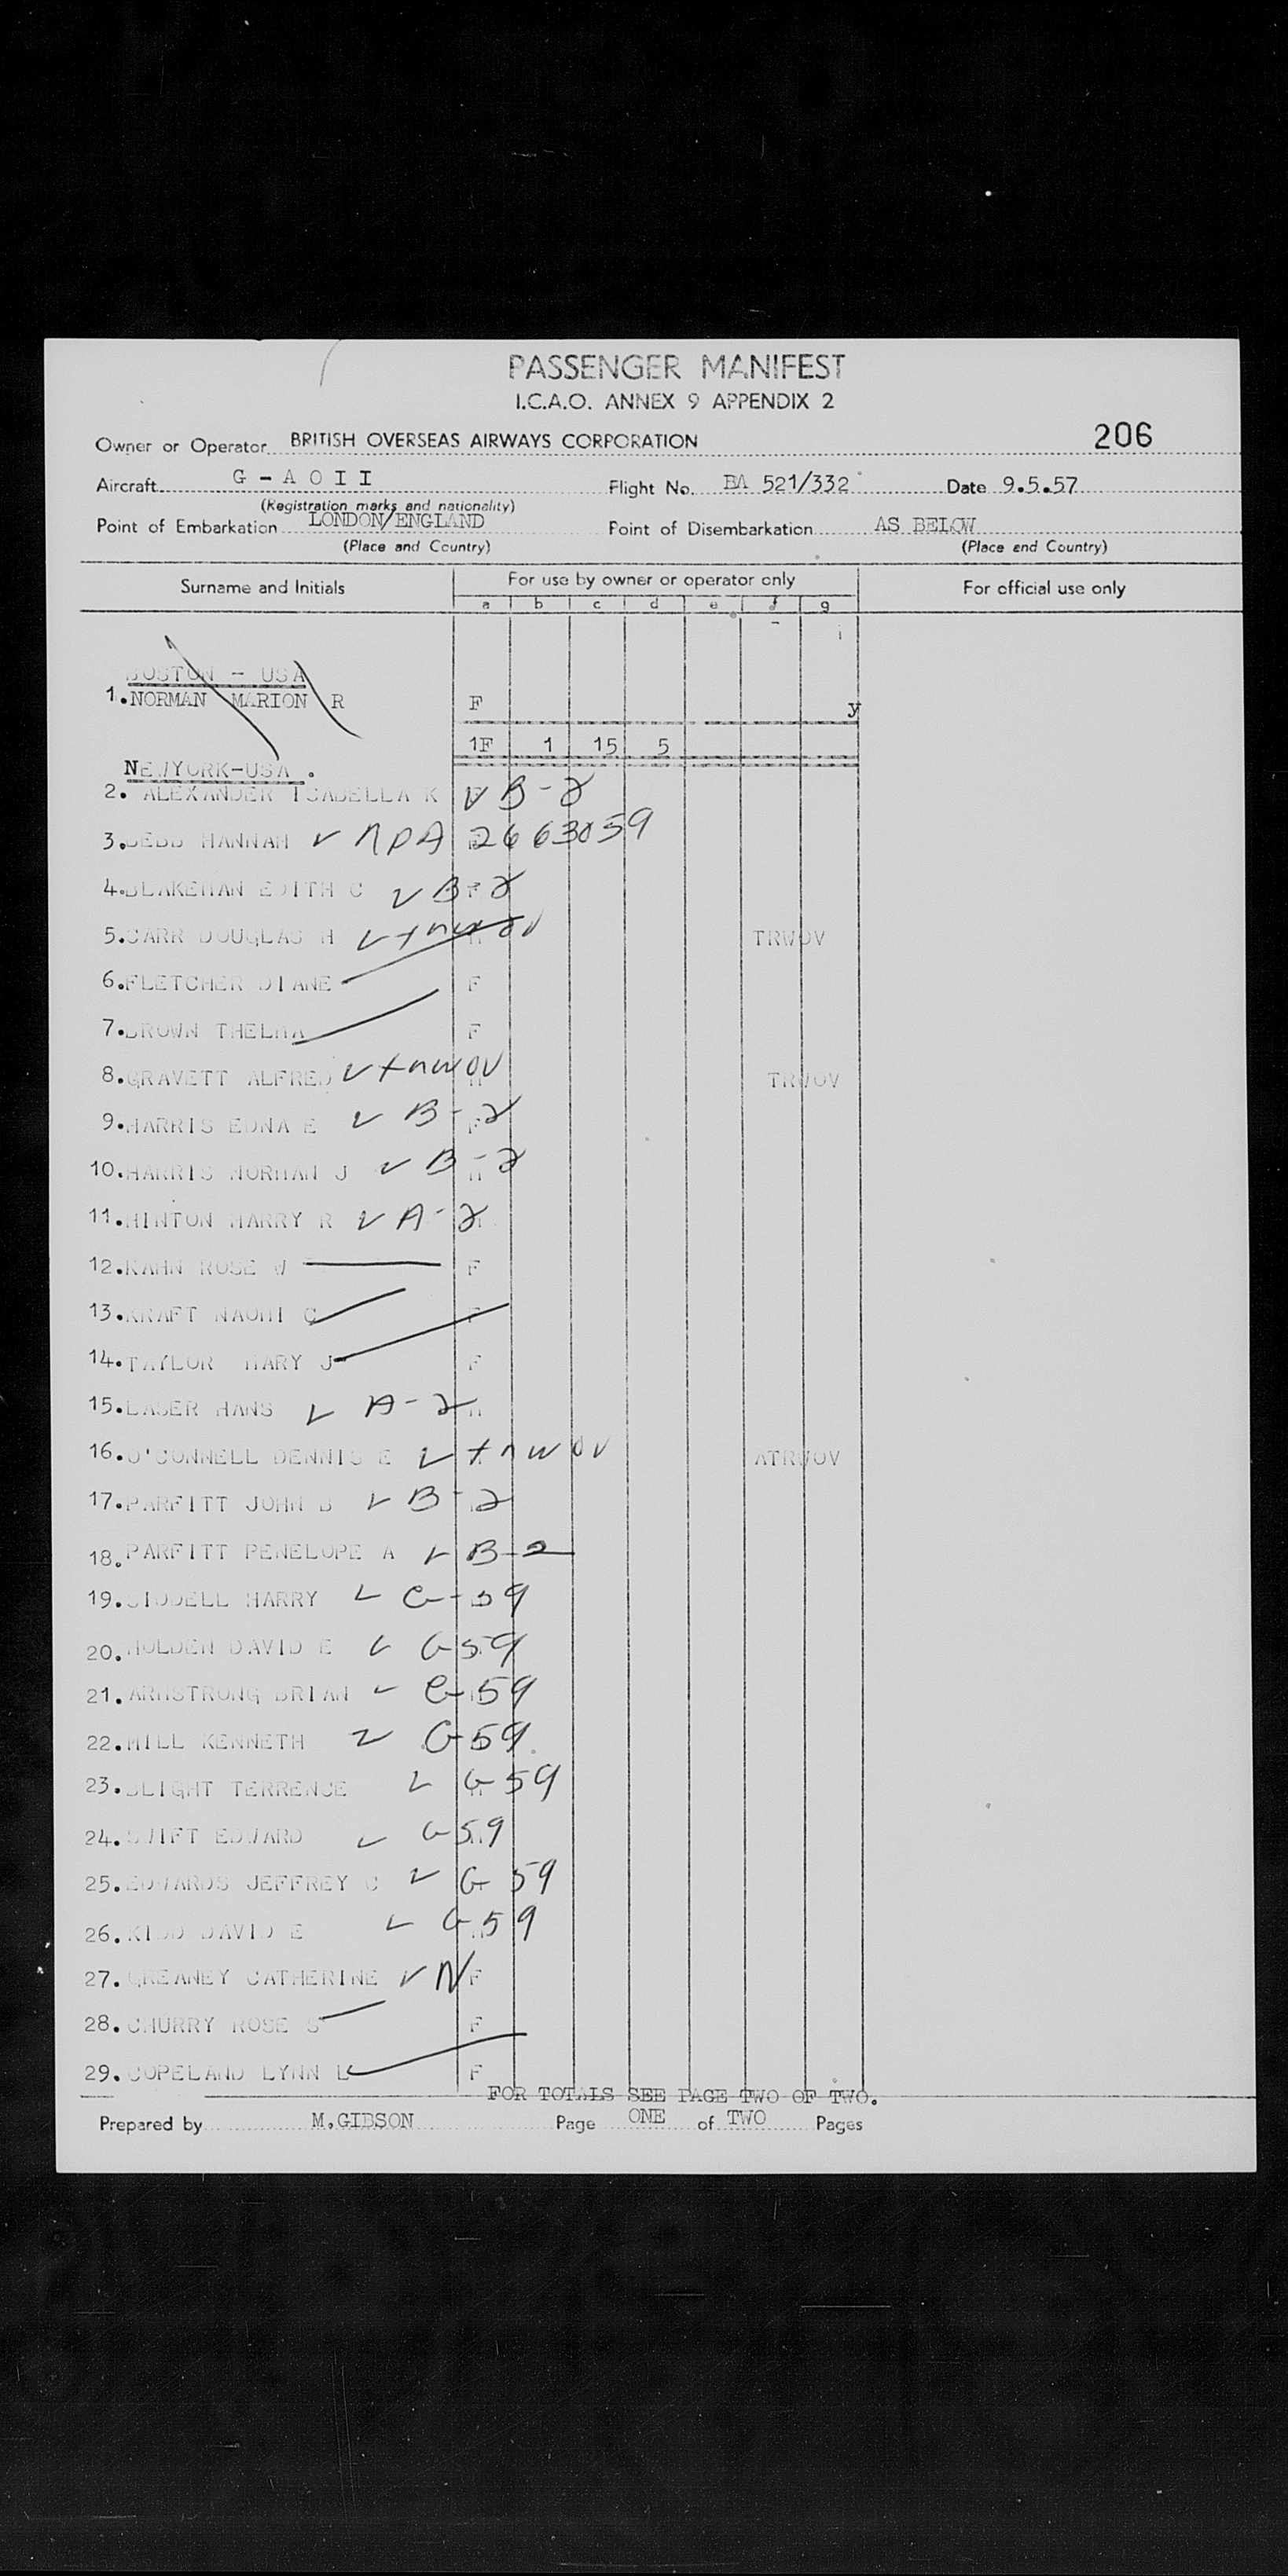 PASSENGER MANIFEST
I.C.A.O. ANNEX 9 APPENDIX 2
206
Owner or Operator BRITISH OVERSEAS AIRWAYS CORPORATION
Aircraft G - A O I I Flight No. BA 521/332 Date 9.5.57
(Registration marks and nationality)
Point of Embarkation LONDON/ENGLAND Point of Disembarkation AS BELOW
(Place and Country) (Place and Country)
Surname and Initials For use by owner or operator only For official use only
a b c d e f g
BOSTON - USA
1. NORMAN MARION R F y
1F 1 15 5
NEWYORK-USA.
2. ALEXANDER ISABELLA K B-2
3. BEBB HANNAH NPA 2663059
4. BLAKEMAN EDITH C B-2
5. CARR DOUGLAS H TRWOV
6. FLETCHER DIANE F
7. BROWN THELMA F
8. GRAVETT ALFRED trwov TRWOV
9. HARRIS EDNA E B-2
10. HARRIS NORMAN J B-2
11. HINTON HARRY R A-2
12. KAHN ROSE W F
13. KRAFT NAOMI C F
14. TAYLOR MARY J F
15. LASER HANS A-2
16. O'CONNELL DENNIS E trwov ATRWOV
17. PARFITT JOHN B B-2
18. PARFITT PENELOPE A B-2
19. SIDDELL HARRY G-59
20. HOLDEN DAVID E G59
21. ARMSTRONG BRIAN G-59
22. HILL KENNETH G59
23. BLIGHT TERRENCE G59
24. SWIFT EDWARD G59
25. EDWARDS JEFFREY C G59
26. KIDD DAVID E G59
27. GREANEY CATHERINE N F
28. CHURRY ROSE S F
29. COPELAND LYNN L F
FOR TOTALS SEE PAGE TWO OF TWO.
Prepared by M.GIBSON Page ONE of TWO Pages